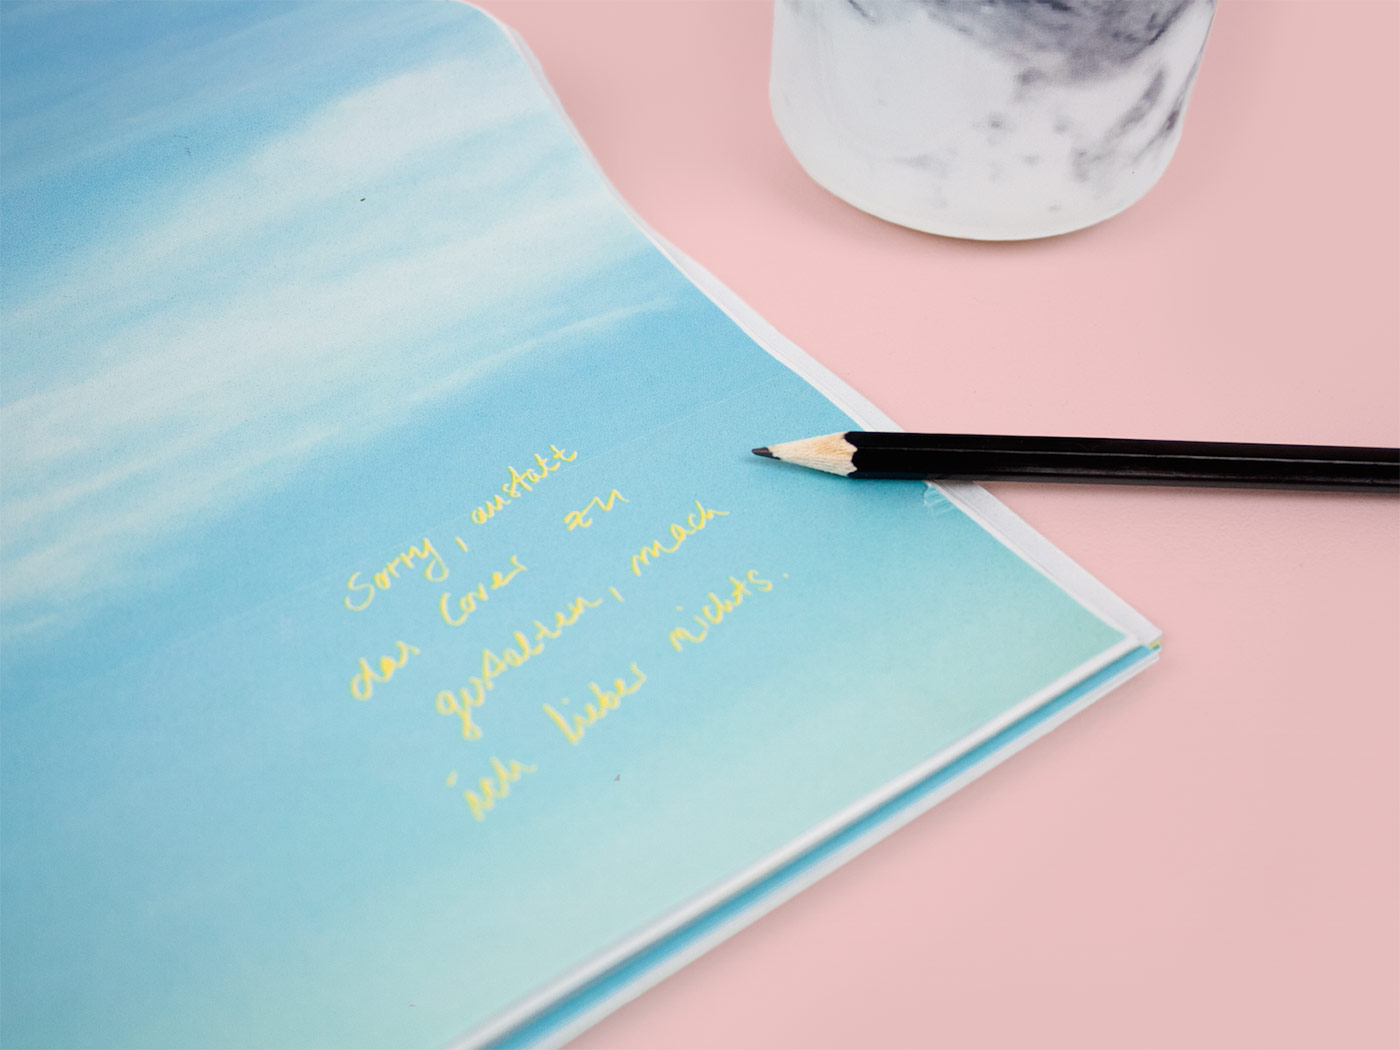 Sorry, anstatt
das Cover zu
gestalten, mach
ich lieber nichts.